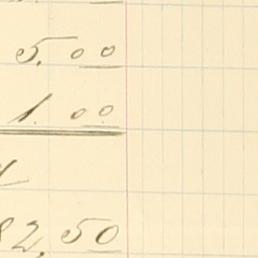 5.00
1.00
82,50